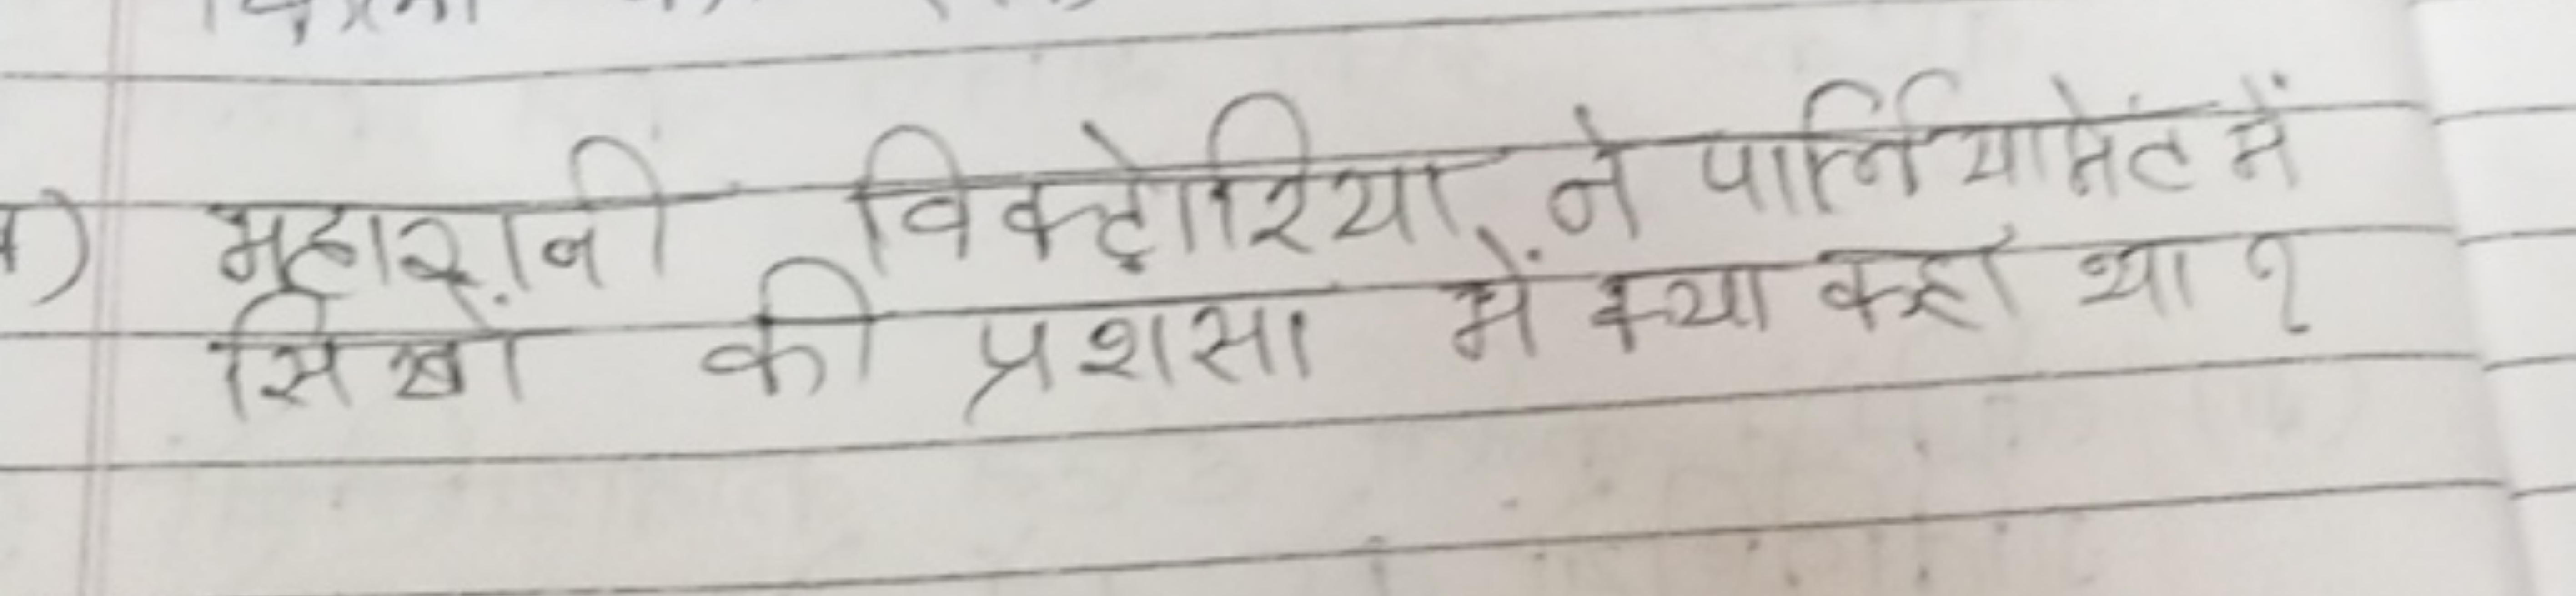 महारानी विक्टोरिया ने पार्लियामेंट में
सिखों की प्रशसा में क्या कहा था ?